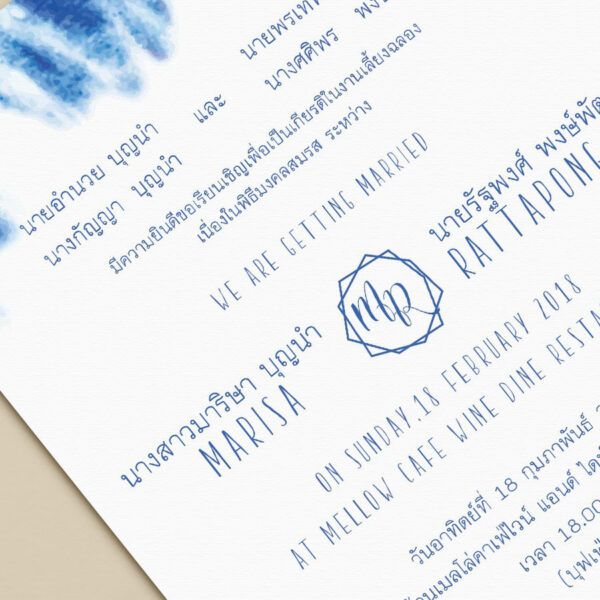 นายอำนวย บุญนำ และ นายพรเทพ
นางกัญญา บุญนำ นางศศิพร พงษ์
มีความยินดีขอเรียนเชิญเพื่อเป็นเกียรติในงานเลี้ยงฉลอง
เนื่องในพิธีมงคลสมรส ระหว่าง
WE ARE GETTING MARRIED
นางสาวมาริษา บุญนำ
MARISA
MR
นายรัฐพงศ์ พงษ์พัฒ
RATTAPONG
ON SUNDAY.18 FEBRUARY 2018
AT MELLOW CAFE WINE DINE RESTA
วันอาทิตย์ที่ 18 กุมภาพันธ์
เมลโล่คาเฟ่ไวน์ แอนด์ ไดน์
เวลา 18.00